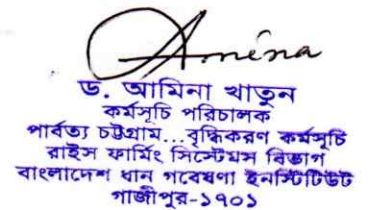 Amina
ড. আমিনা খাতুন
কর্মসূচি পরিচালক
পার্বত্য চট্টগ্রাম...বৃদ্ধিকরণ কর্মসূচি
রাইস ফার্মিং সিস্টেমস বিভাগ
বাংলাদেশ ধান গবেষণা ইনস্টিটিউট
গাজীপুর-১৭০১